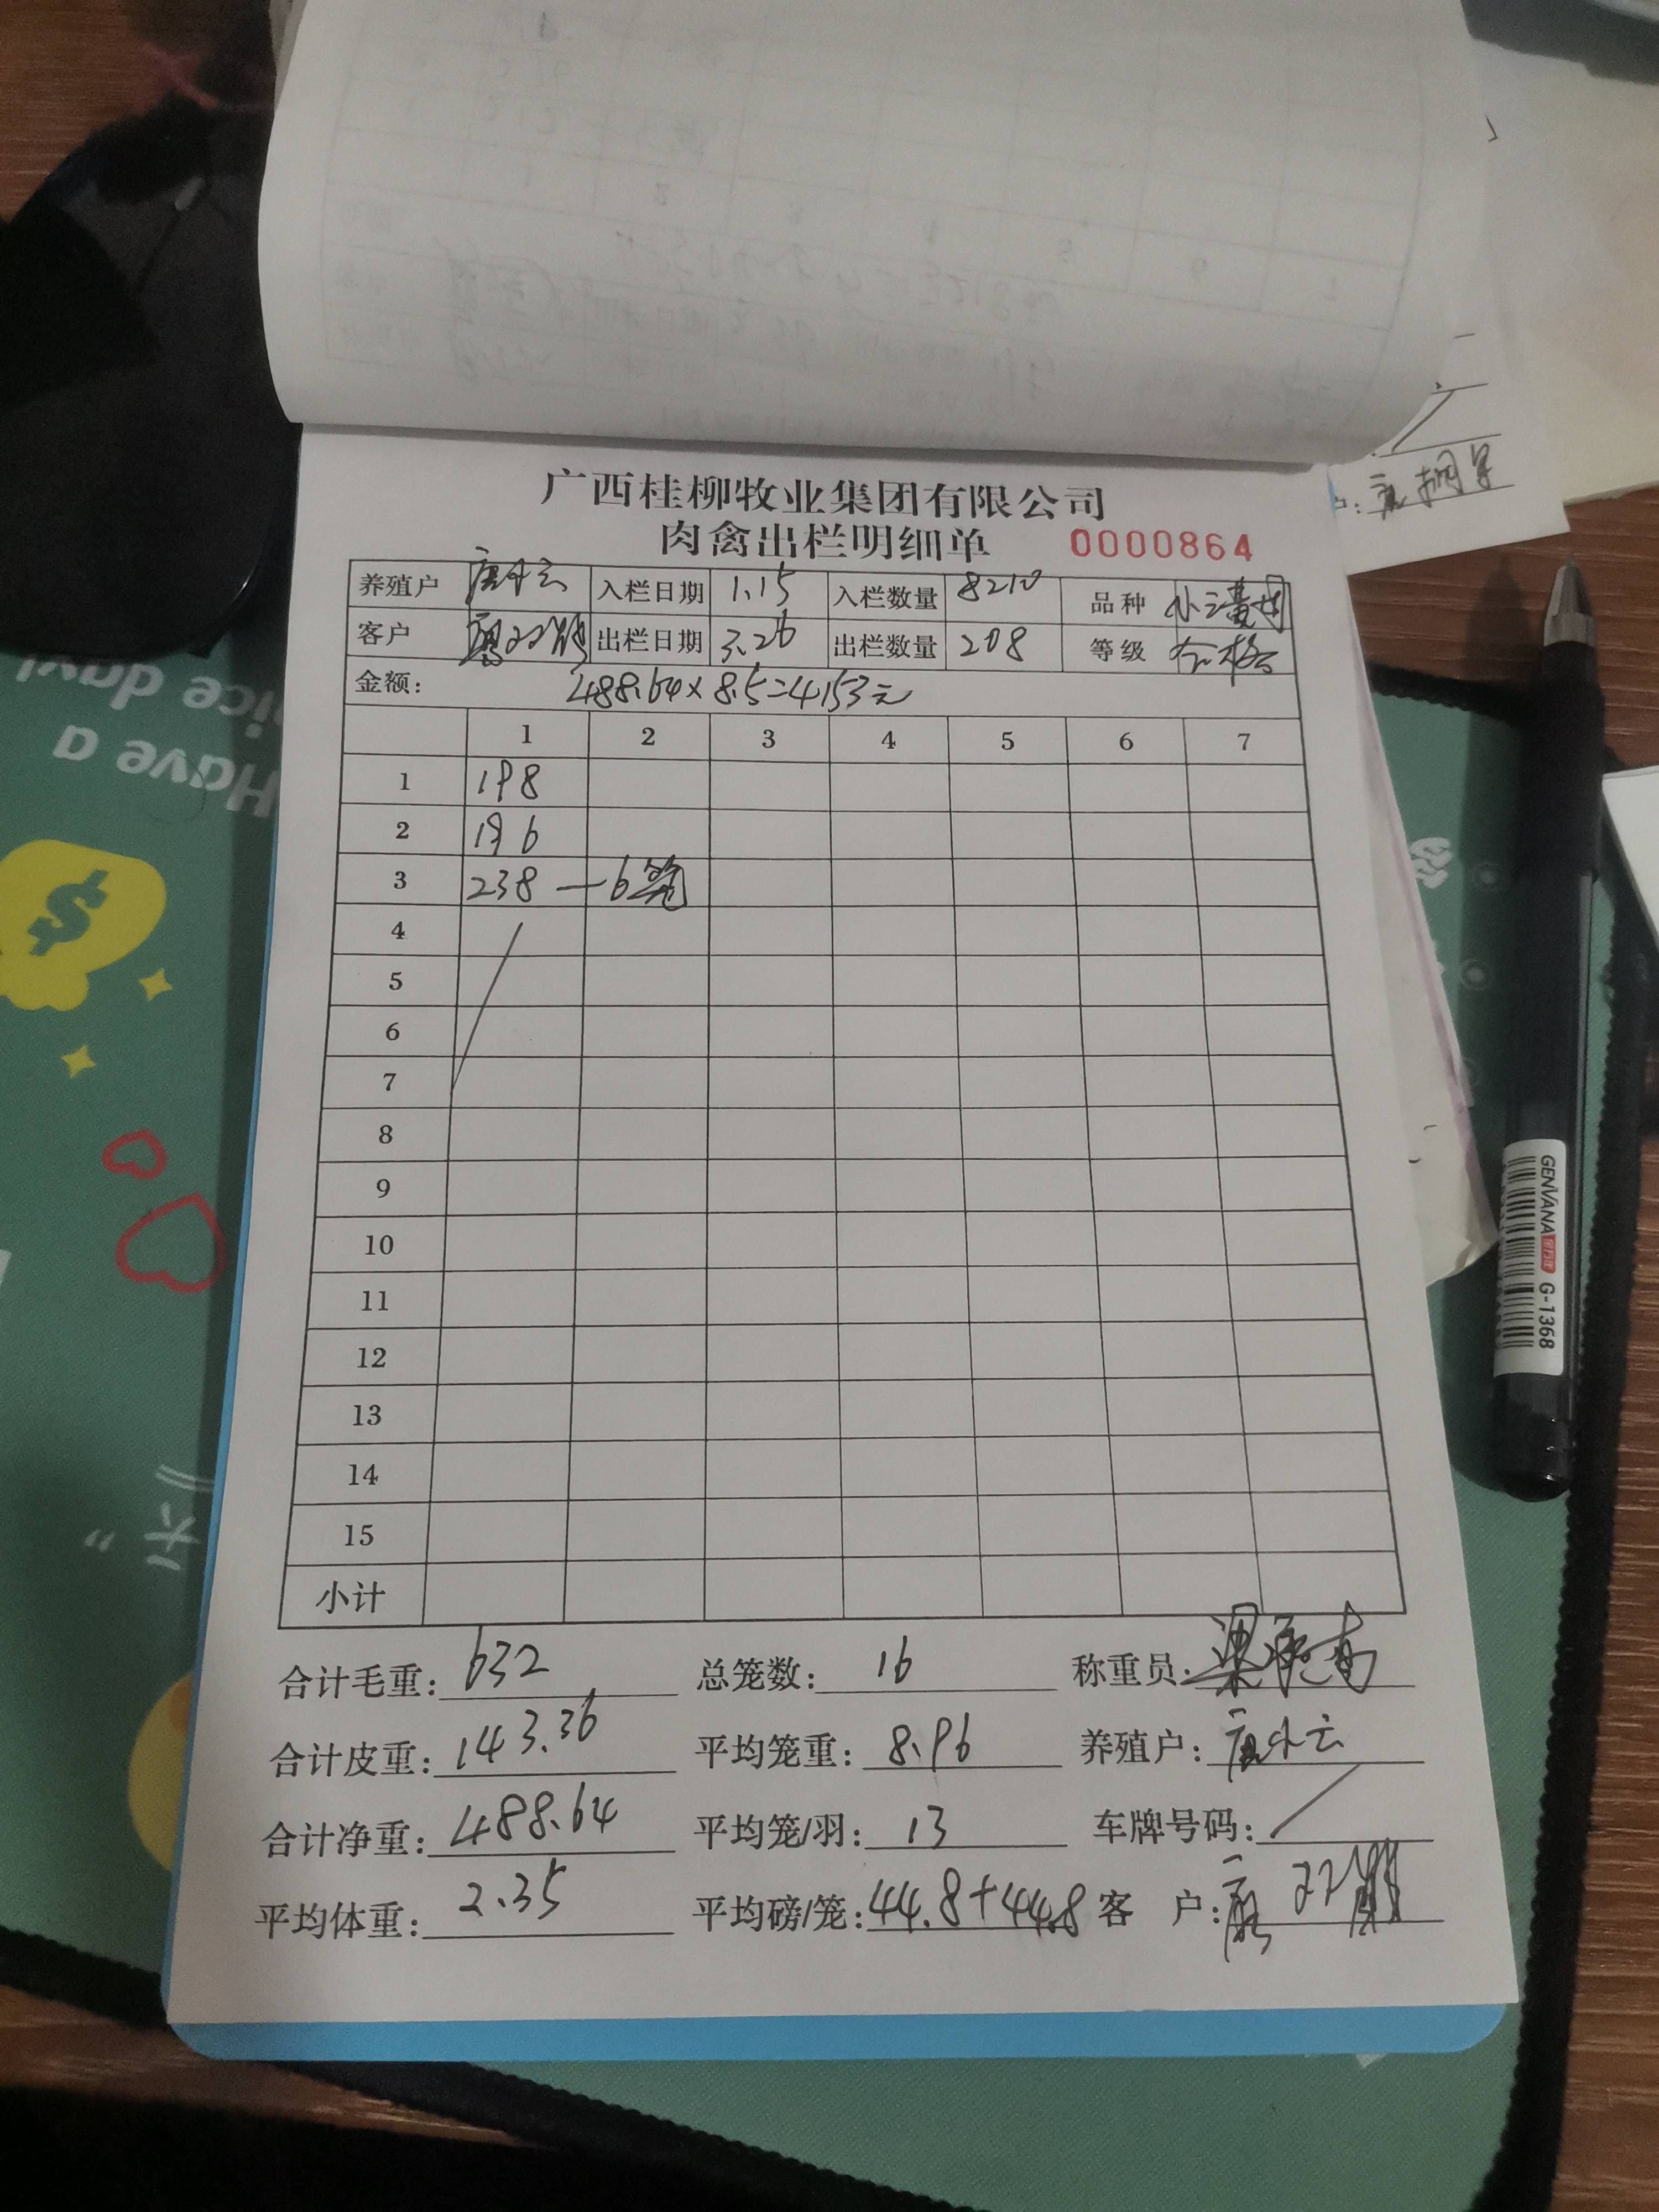 广西桂柳牧业集团有限公司
肉禽出栏明细单 0000864
养殖户 入栏日期 1.15 入栏数量 8210 品种
客户 出栏日期 3.26 出栏数量 208 等级 合格
金额: 488.64×8.5=4153元
1 2 3 4 5 6 7
1 198
2 196
3 238 — 6笼
4
5
6
7
8
9
10
11
12
13
14
15
小计
合计毛重: 632 总笼数: 16 称重员:
合计皮重: 143.36 平均笼重: 8.96 养殖户:
合计净重: 488.64 平均笼/羽: 13 车牌号码:
平均体重: 2.35 平均磅/笼: 44.8+44.8 客 户:
Have a
nice day!
$
GENVANA G-1368